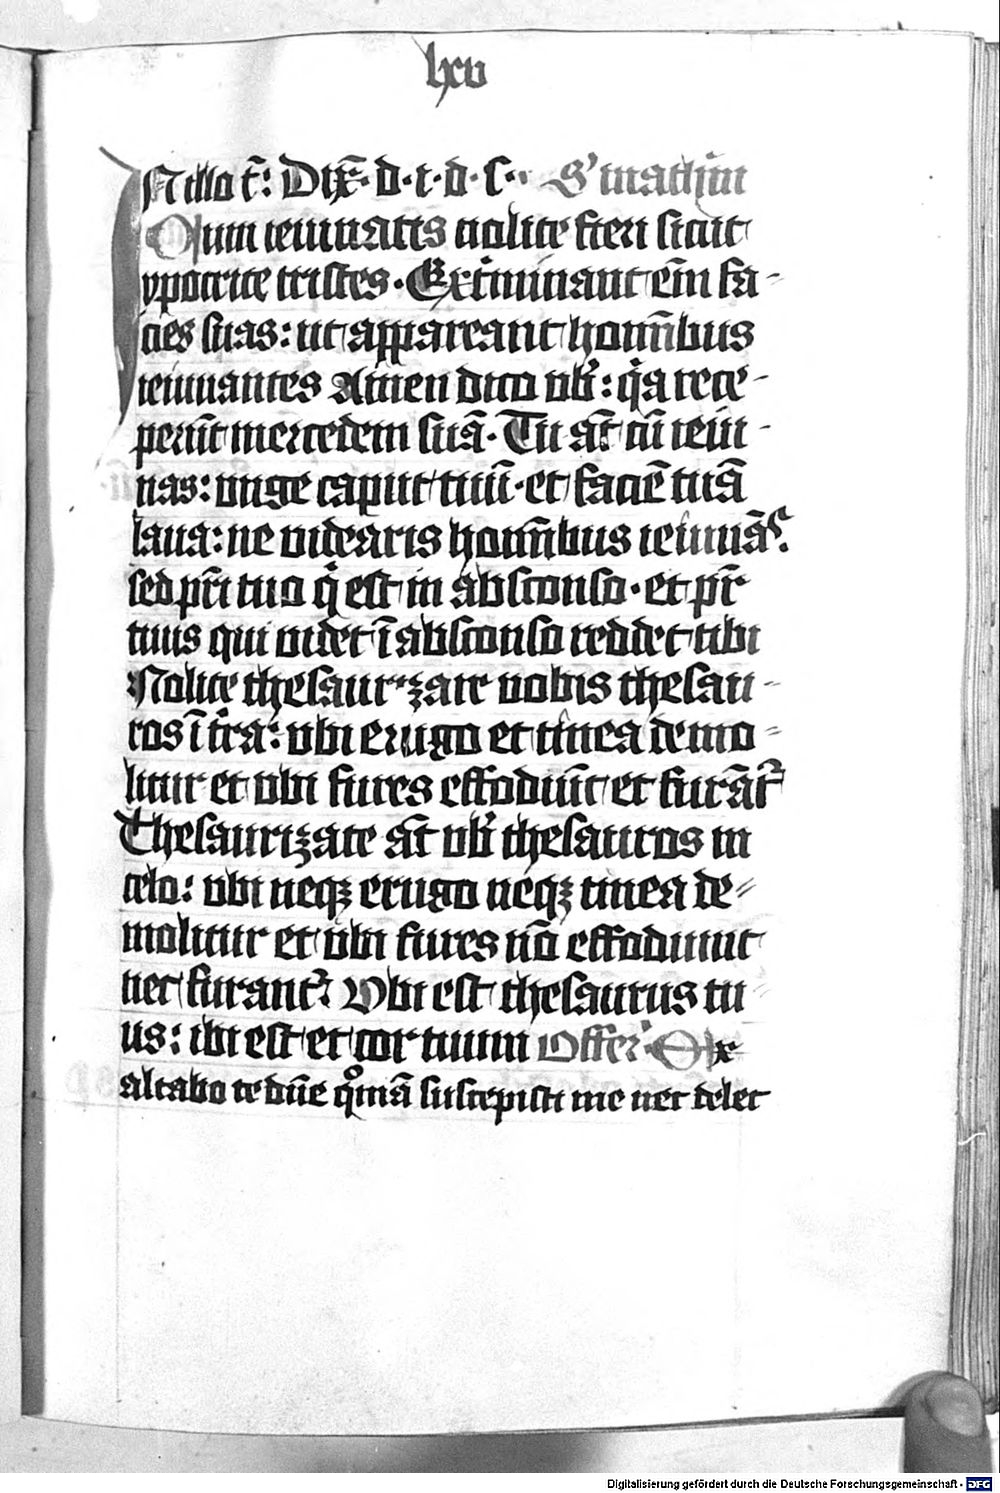 lxv
IN illo t̄: Dix̄· d· i· d· s· S' mathm̄
Qum ieiunatis nolite fieri sicut
ypocrite tristes· Ext̄minant em̄ fa-
cies suas: ut appareant homībus
ieiunantes Amen dico vob̄: qa rece-
perūt mercedem suā· Tu āt cū ieiu-
nas: unge caput tuū· et faciē tuā
laua: ne videaris homībus ieiunās·
sed pr̄i tuo qͥ est in absconso· et pr̄
tuus qui videt ī absconso reddet tibi
Nolite thesaurizare vobis thesau-
ros ī tr̄a: vbi erugo et tinea demo-
litur et vbi fures effodiūt et furāt᷑
Thesaurizate āt vob̄ thesauros in
celo: vbi neqꝫ erugo neqꝫ tinea de-
molitur et vbi fures nō effodiunt
nec furant᷑ Vbi est thesaurus tu-
us: ibi est et cor tuum Offer̄· Ex
altabo te dn̄e qͦmā suscepisti me nec delec
Digitalisierung gefördert durch die Deutsche Forschungsgemeinschaft - DFG